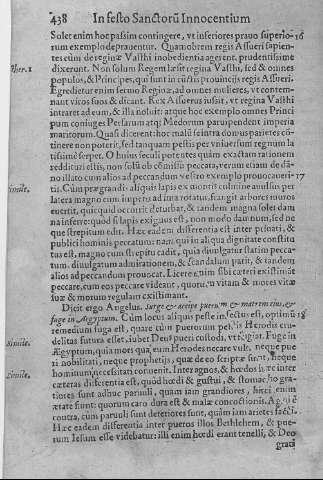 438 In festo Sanctorũ Innocentium
Solet enim hoc passim contingere, vt inferiores prauo superio- 16
rum exemplo deprauentur. Quamobrem regis Assueri sapien-
tes cum de reginæ Vasthi inobedientia agerent, prudentissime
dixerunt. Non solum Regem læsit regina Vasthi, sed & omnes
populos, & Principes, qui sunt in cũctis prouincijs regis Assueri.
Egredietur enim sermo Reginæ, ad omnes mulieres, vt contem-
nant viros suos, & dicant. Rex Assuerus iussit, vt regina Vasthi
intraret ad eum, & illa noluit: atque hoc exemplo omnes Princi
pum coniuges Persarum atq; Medorum paruipendent imperia
maritorum. Quasi dicerent: hoc malũ se intra domus parietes cõ
tinere non poterit, sed tanquam pestis per vniuersum regnum la
tissimè serpet. O huius seculi potentes quàm exactam rationem
reddituri estis, non solũ ob commissa peccata, verum etiam de dã-
no illato cum alios ad peccandum vestro exemplo prouocaueri- 17
tis. Cùm prægrandis aliquis lapis ex montis culmine auulsus per
latera magno cum impetu ad ima rotatur, frangit arbores muros
euertit, quicquid occurrit deturbat, & tandem magna solet dam
na inferre: quod si lapis exiguus est, non modo damnum, sed ne
que strepitum edit. Hæc eadem differentia est inter priuati, &
publici hominis peccatum: nam qui in aliqua dignitate constitu
tus est, magno cum strepitu cadit, quia diuulgatur statim pecca-
tum, diuulgatum admirationem, & scandalum parit, & tandem
alios ad peccandum prouocat. Licere enim sibi cæteri existimãt
peccare, cum eos peccare videant, quorum vitam & mores vitæ
suæ & morum regulam existimant.
Dicit ergo Angelus. Surge & accipe puerum & matrem eius, &
fuge in Ægyptum. Cùm locus aliquis peste infectus est, optimũ 18
remedium fuga est, quare cùm puerorum pestis Herodis cru-
delitas futura esset, iubet Deus pueri custodi, vt fugiat. Fuge in
Ægyptum, quia mors quæ eum Herodes necare vult, neque pue
ri nobilitati, neque prophetijs, quæ de eo scriptæ sunt, neque
hominum necessitati conuenit. Inter agnos, & hœdos hæc inter
cæteras differentia est, quòd hœdi & gustui, & stomacho gra-
tiores sunt adhuc paruuli, quàm iam grandiores, fœtet enim
ætate sunt: quorum caro dura est & malæ concoctionis. Agni è
contra, cùm paruuli sunt deteriores sunt, quàm iam arietes facti.
Hæc eadem differentia inter pueros illos Bethlehem, & pue-
rum Iesum esse videbatur: illi enim hœdi erant tenelli, & Deo
grati
Esther. 1
Simile.
Simile.
Simile.